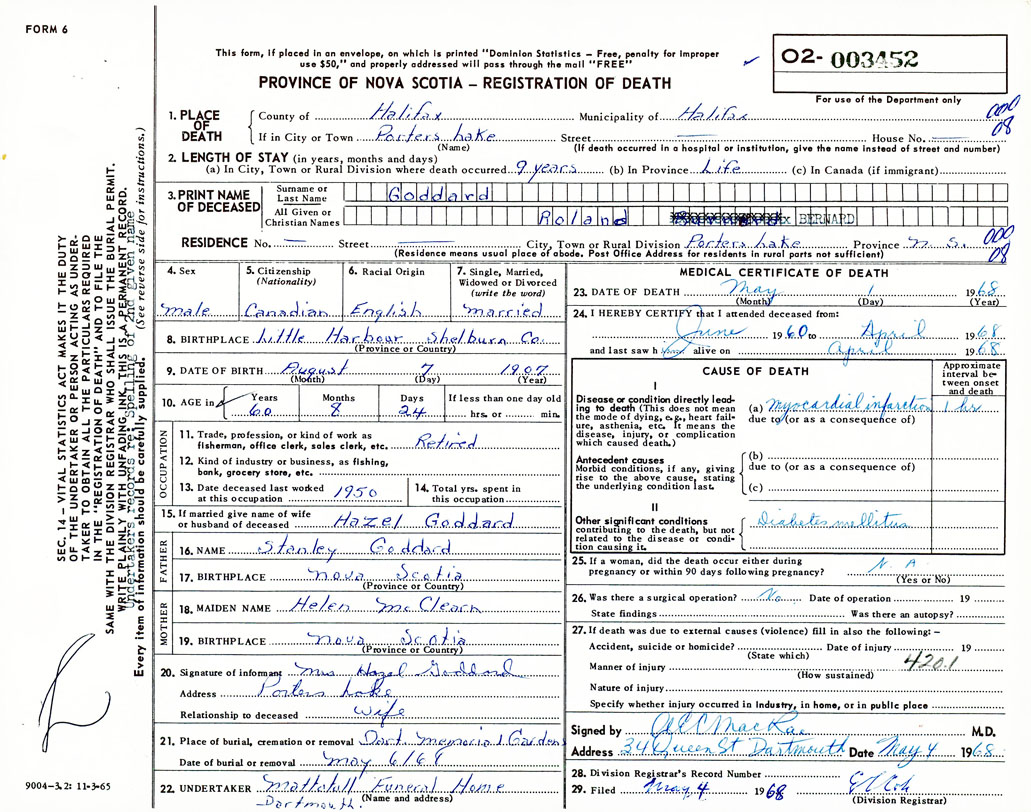 FORM 6
This form, if placed in an envelope, on which is printed "Dominion Statistics – Free, penalty for improper
use $50," and properly addressed will pass through the mail "FREE"
02- 003452
For use of the Department only
PROVINCE OF NOVA SCOTIA – REGISTRATION OF DEATH
1. PLACE OF DEATH
County of Halifax Municipality of Halifax 000
If in City or Town Porters Lake Street — House No. — 08
(Name) (If death occurred in a hospital or institution, give the name instead of street and number)
2. LENGTH OF STAY (in years, months and days)
(a) In City, Town or Rural Division where death occurred 9 years (b) In Province Life (c) In Canada (if immigrant)
3. PRINT NAME OF DECEASED
Surname or Last Name Goddard
All Given or Christian Names Roland BERNARD
RESIDENCE No. — Street — City, Town or Rural Division Porters Lake Province N. S. 000
08
(Residence means usual place of abode. Post Office Address for residents in rural parts not sufficient)
4. Sex male
5. Citizenship (Nationality) Canadian
6. Racial Origin English
7. Single, Married, Widowed or Divorced (write the word) married
8. BIRTHPLACE Little Harbour Shelburn Co.
(Province or Country)
9. DATE OF BIRTH August 7 1907
(Month) (Day) (Year)
10. AGE in Years 60 Months 8 Days 24 If less than one day old hrs. or min.
OCCUPATION
11. Trade, profession, or kind of work as
fisherman, office clerk, sales clerk, etc. Retired
12. Kind of industry or business, as fishing,
bank, grocery store, etc.
13. Date deceased last worked
at this occupation 1950
14. Total yrs. spent in
this occupation
15. If married give name of wife
or husband of deceased Hazel Goddard
FATHER
16. NAME Stanley Goddard
17. BIRTHPLACE Nova Scotia
(Province or Country)
MOTHER
18. MAIDEN NAME Helen McClearn
19. BIRTHPLACE Nova Scotia
(Province or Country)
20. Signature of informant Mrs Hazel Goddard
Address Porters Lake
Relationship to deceased Wife
21. Place of burial, cremation or removal Dart. Memorial Gardens
Date of burial or removal May 6/68
22. UNDERTAKER Mattatall Funeral Home
(Name and address)
Dartmouth.
MEDICAL CERTIFICATE OF DEATH
23. DATE OF DEATH May 1 1968
(Month) (Day) (Year)
24. I HEREBY CERTIFY that I attended deceased from:
June 1960 to April 1968
and last saw h alive on April 1968
CAUSE OF DEATH
Approximate interval between onset and death
I
Disease or condition directly leading
to death (This does not mean
the mode of dying, e.g., heart failure,
asthenia, etc. It means the
disease, injury, or complication
which caused death.)
(a) myocardial infarction 1 hr
due to (or as a consequence of)
Antecedent causes
Morbid conditions, if any, giving
rise to the above cause, stating
the underlying condition last.
(b)
due to (or as a consequence of)
(c)
II
Other significant conditions
contributing to the death, but not
related to the disease or condition
causing it.
Diabetes mellitus
25. If a woman, did the death occur either during
pregnancy or within 90 days following pregnancy? N. A.
(Yes or No)
26. Was there a surgical operation? No Date of operation 19
State findings Was there an autopsy?
27. If death was due to external causes (violence) fill in also the following: –
Accident, suicide or homicide? Date of injury 19
(State which)
4201
Manner of injury
(How sustained)
Nature of injury
Specify whether injury occurred in industry, in home, or in public place
Signed by A E C MacRae M.D.
Address 34 Queen St Dartmouth Date May 4 1968
28. Division Registrar's Record Number
29. Filed May 4 1968
(Division Registrar)
SEC. 14 – VITAL STATISTICS ACT MAKES IT THE DUTY
OF THE UNDERTAKER OR PERSON ACTING AS UNDERTAKER
TO OBTAIN ALL THE PARTICULARS REQUIRED
IN THE "REGISTRATION OF DEATH" AND TO FILE THE
SAME WITH THE DIVISION REGISTRAR WHO SHALL ISSUE THE BURIAL PERMIT.
WRITE PLAINLY WITH UNFADING INK. THIS IS A PERMANENT RECORD.
Undertakers records re: Spelling of 2nd given name
Every item of information should be carefully supplied. (See reverse side for instructions.)
9004-3.2: 11-3-65